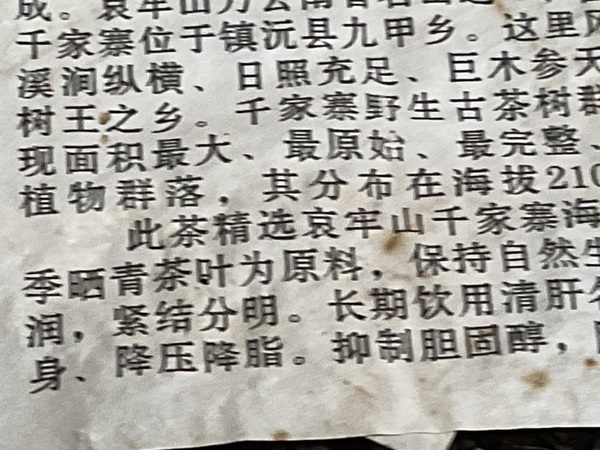 成。哀牢山乃云南省名山之
千家寨位于镇沅县九甲乡。这里风
溪涧纵横、日照充足、巨木参天
树王之乡。千家寨野生古茶树群
现面积最大、最原始、最完整、
植物群落，其分布在海拔210
此茶精选哀牢山千家寨海
季晒青茶叶为原料，保持自然生
润，紧结分明。长期饮用清肝名
身、降压降脂。抑制胆固醇，